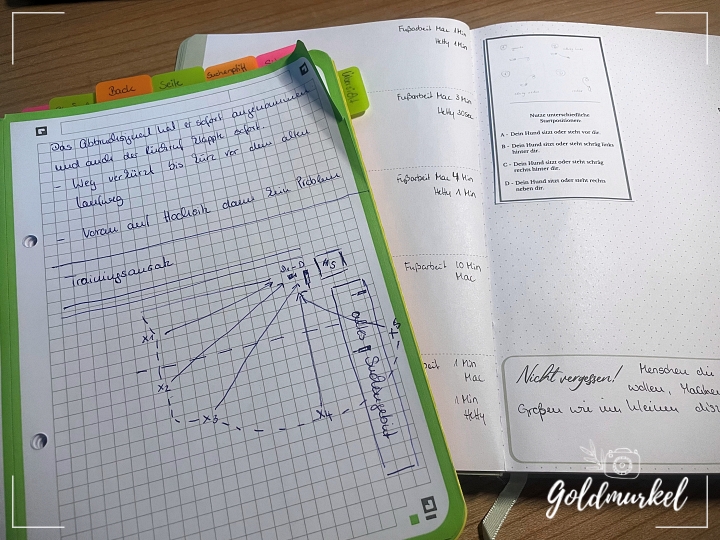 Bade
Seite
Suchenpfiff
Das Abbruchsignal hat er sofort angenommen
und auch der Rückruf klappte sofort.
- Weg verkürzt bis kurz vor dem alten
Laufweg
- Voran auf Hochsitz dann zum Problem
Trainingsansatz
HS
X1
X2
X3
X4
altes Suchengebiet
Fußarbeit Mac 1 Min
Hetty 1 Min
Fußarbeit Mac 3 Min
Hetty 30sec
Fußarbeit Mac 4 Min
Hetty 1 Min
Fußarbeit 10 Min
Mac
beit 1 Min
Mac
1 Min
Hetty
Nutze unterschiedliche
Startpositionen:
A - Dein Hund sitzt oder steht vor dir.
B - Dein Hund sitzt oder steht schräg links
hinter dir.
C - Dein Hund sitzt oder steht schräg
rechts hinter dir.
D - Dein Hund sitzt oder steht rechts
neben dir.
Nicht vergessen! Menschen die
wollen,
Großen wie im Kleinen
Goldmurkel